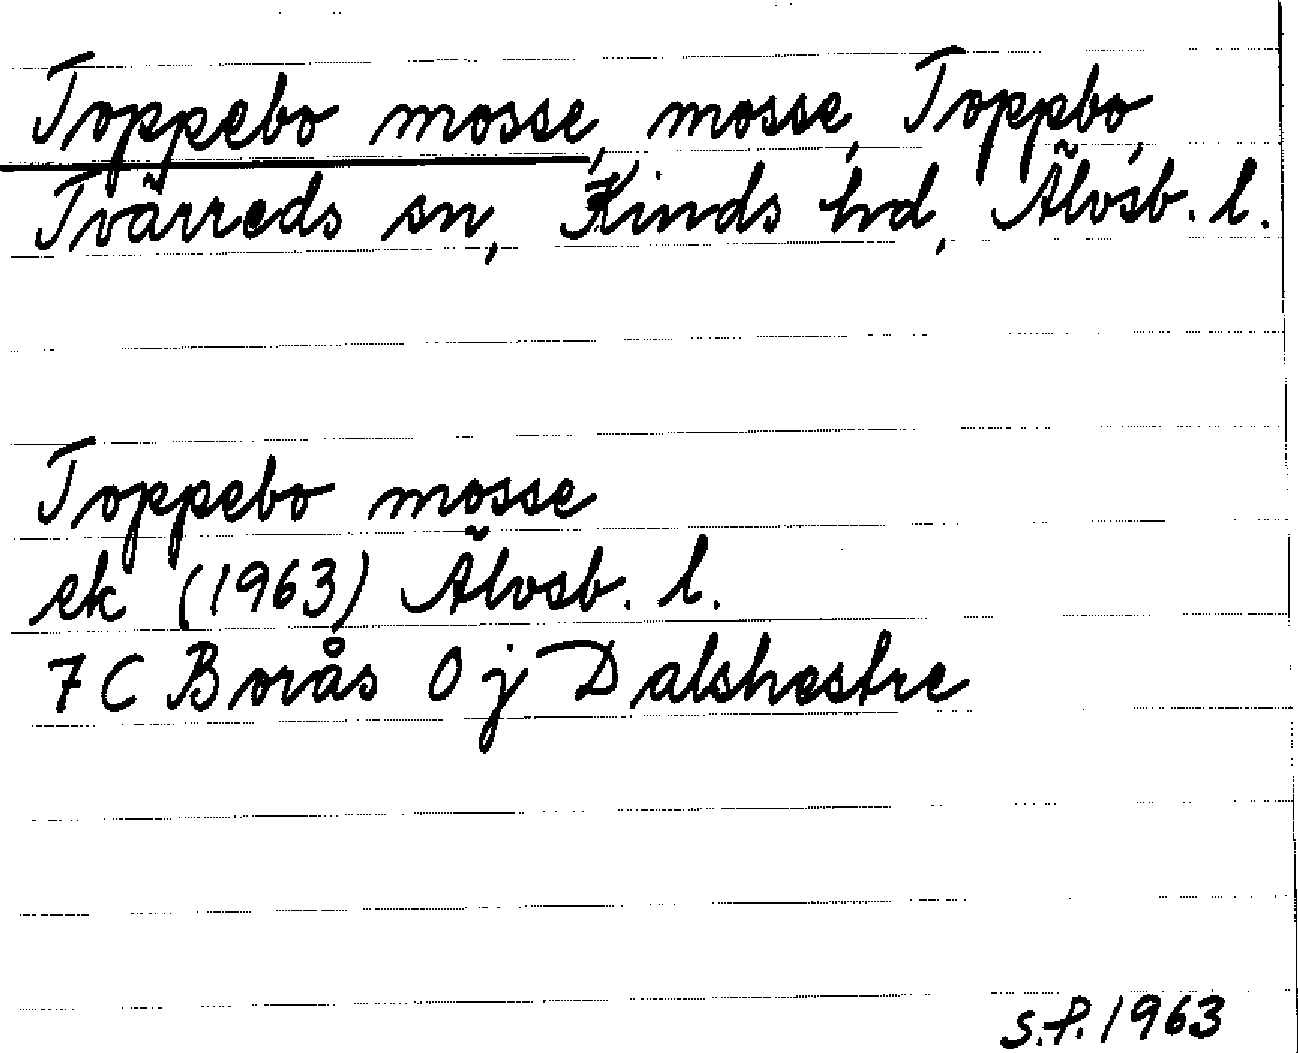 Toppebo mosse, mosse, Toppbo,
Tvärreds sn, Kinds hd, Älvsb. l.
Toppebo mosse
ek (1963) Älvsb. l.
7C Borås 0j Dalshestre
S.F. 1963